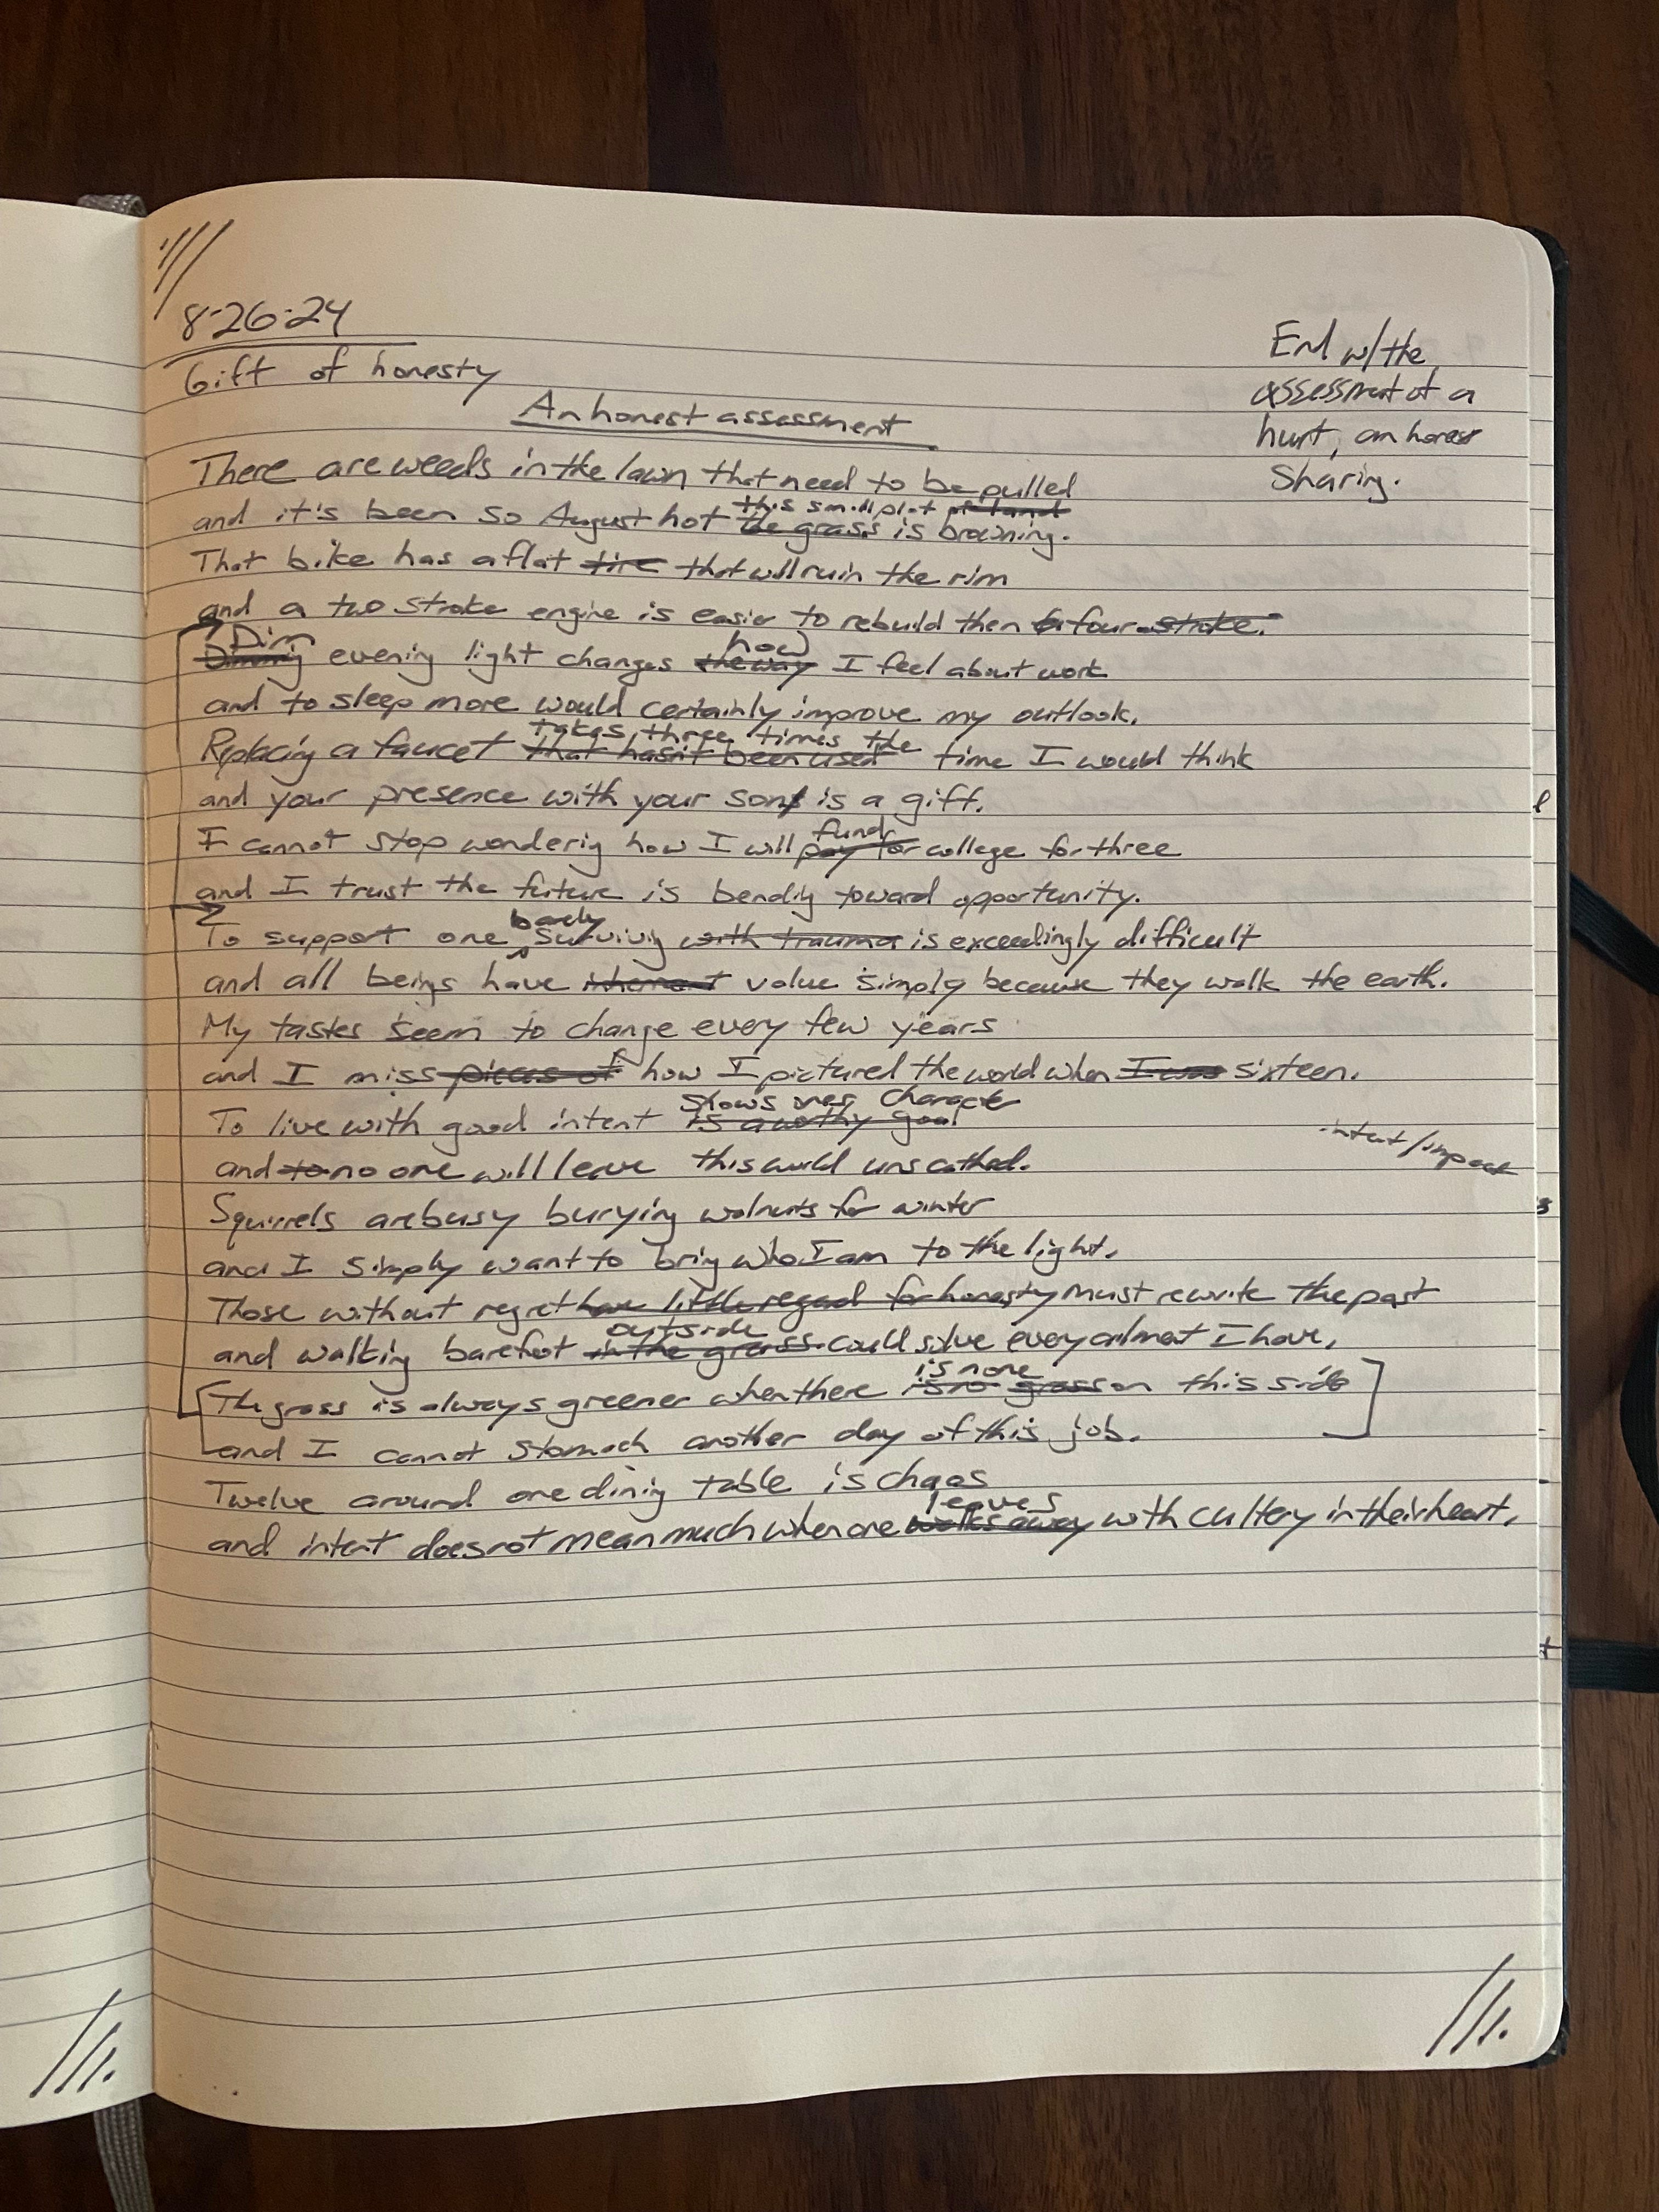 8·26·24
Gift of honesty
End w/ the
assessment of a
hurt, an honest
sharing.
An honest assessment
There are weeds in the lawn that need to be pulled
this small plot of land
and it's been so August hot the grass is browning.
That bike has a flat tire that will ruin the rim
and a two stroke engine is easier to rebuild then a four stroke.
Dim how
Dimming evening light changes the way I feel about work
and to sleep more would certainly improve my outlook.
takes three times the
Replacing a faucet that hasn't been used time I would think
and your presence with your sons is a gift.
fund
I cannot stop wondering how I will pay for college for three
and I trust the future is bending toward opportunity.
barely
To support one surviving with trauma is exceedingly difficult
and all beings have inherent value simply because they walk the earth.
My tastes seem to change every few years
and I miss pieces of how I pictured the world when I was sixteen.
shows character
To live with good intent is a worthy goal
intent/impact
and to no one will leave this world unscathed.
Squirrels are busy burying walnuts for winter
and I simply want to bring who I am to the light.
Those without regret have little regard for honesty must rewrite the past
outside
and walking barefoot in the grass could solve every ailment I have.
is none
The grass is always greener when there is no grass on this side
and I cannot stomach another day of this job.
Twelve around one dining table is chaos
leaves
and intent does not mean much when one walks away with cutlery in their heart.